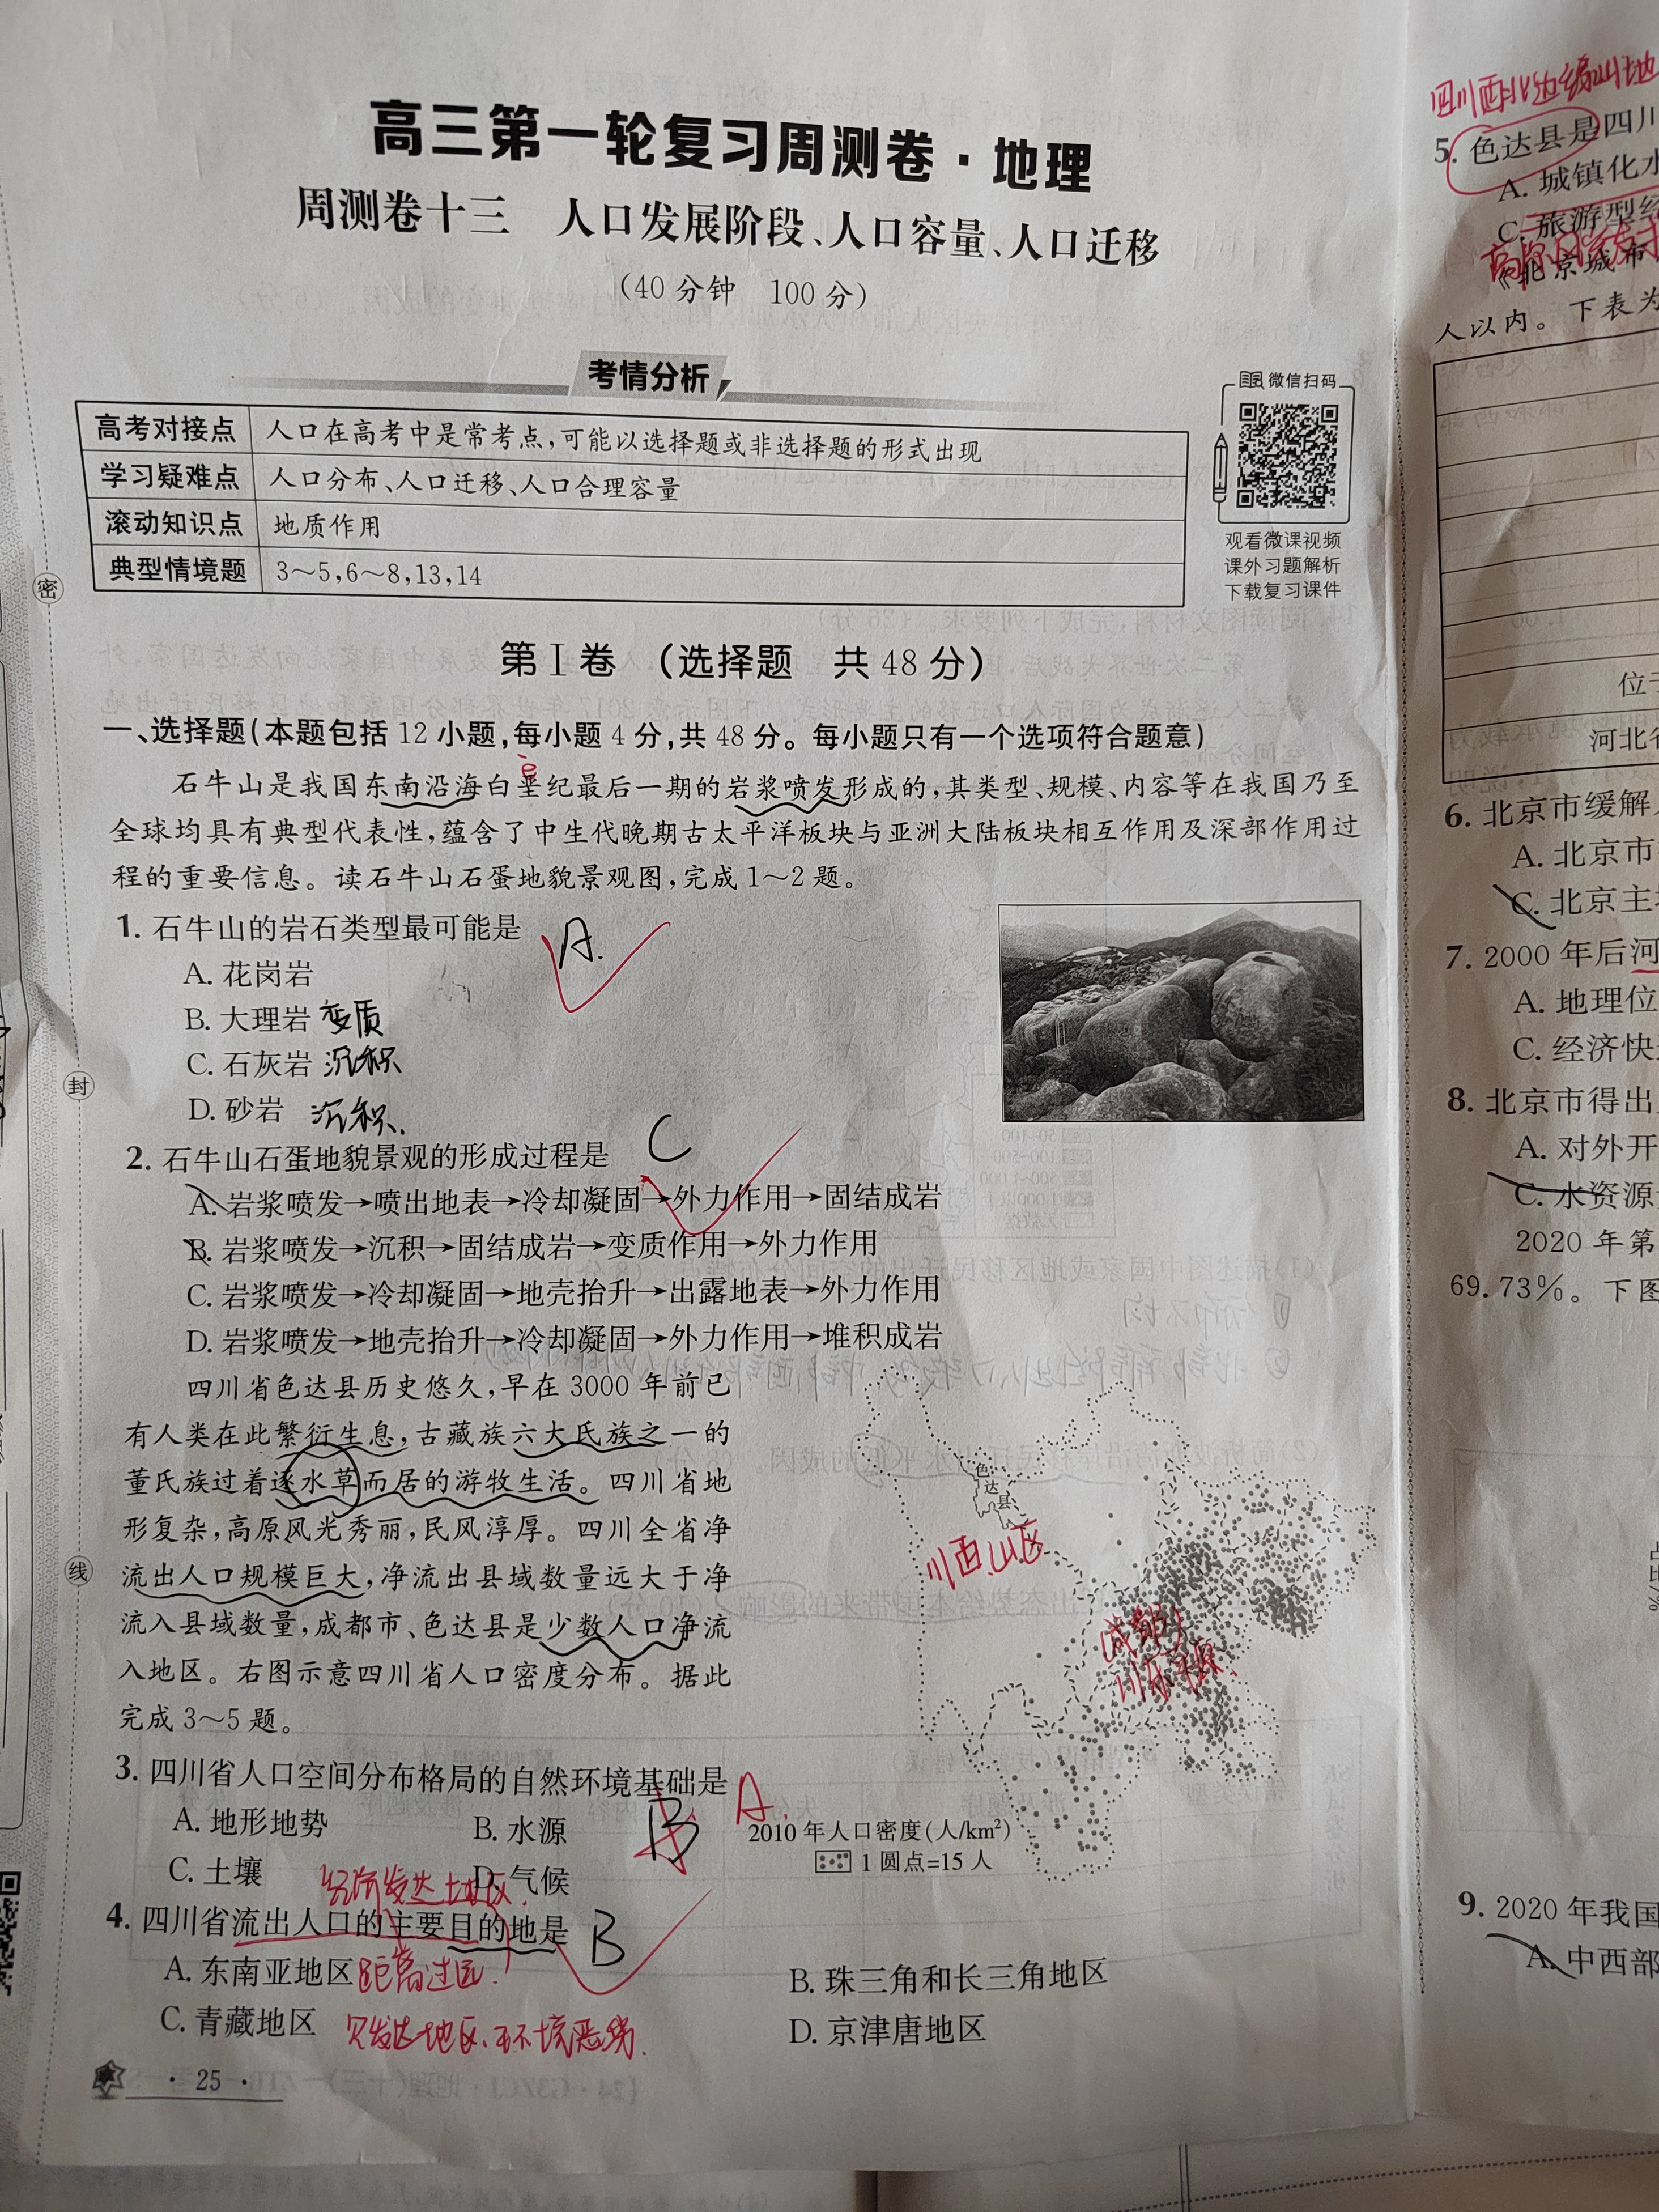 高三第一轮复习周测卷·地理
周测卷十三 人口发展阶段、人口容量、人口迁移
(40分钟 100分)
考情分析
高考对接点 人口在高考中是常考点,可能以选择题或非选择题的形式出现
学习疑难点 人口分布、人口迁移、人口合理容量
滚动知识点 地质作用
典型情境题 3～5,6～8,13,14
微信扫码
观看微课视频
课外习题解析
下载复习课件
密
封
线
第Ⅰ卷 (选择题 共48分)
一、选择题(本题包括12小题,每小题4分,共48分。每小题只有一个选项符合题意)
石牛山是我国东南沿海白垩纪最后一期的岩浆喷发形成的,其类型、规模、内容等在我国乃至
全球均具有典型代表性,蕴含了中生代晚期古太平洋板块与亚洲大陆板块相互作用及深部作用过
程的重要信息。读石牛山石蛋地貌景观图,完成1～2题。
1. 石牛山的岩石类型最可能是 A.
A. 花岗岩
B. 大理岩 变质
C. 石灰岩 沉积
D. 砂岩 沉积.
2. 石牛山石蛋地貌景观的形成过程是 C
A. 岩浆喷发→喷出地表→冷却凝固→外力作用→固结成岩
B. 岩浆喷发→沉积→固结成岩→变质作用→外力作用
C. 岩浆喷发→冷却凝固→地壳抬升→出露地表→外力作用
D. 岩浆喷发→地壳抬升→冷却凝固→外力作用→堆积成岩
四川省色达县历史悠久,早在3000年前已
有人类在此繁衍生息,古藏族六大氏族之一的
董氏族过着逐水草而居的游牧生活。四川省地
形复杂,高原风光秀丽,民风淳厚。四川全省净
流出人口规模巨大,净流出县域数量远大于净
流入县域数量,成都市、色达县是少数人口净流
入地区。右图示意四川省人口密度分布。据此
完成3～5题。
色达县
川西山区
成都
2010年人口密度(人/km²)
1圆点=15人
3. 四川省人口空间分布格局的自然环境基础是 B A.
A. 地形地势 B. 水源
C. 土壤 D. 气候
经济发达地区.
4. 四川省流出人口的主要目的地是 B
A. 东南亚地区 距离过远. B. 珠三角和长三角地区
C. 青藏地区 欠发达地区、环境恶劣. D. 京津唐地区
· 25 ·
四川西北边缘山地
5. 色达县是四川
A. 城镇化水
C. 旅游型经
《北京城市
人以内。下表为
位于
河北省
6. 北京市缓解
A. 北京市
C. 北京主
7. 2000年后河
A. 地理位
C. 经济快
8. 北京市得出
A. 对外开
C. 水资源
2020年第
69.73%。下图
9. 2020年我国
A. 中西部